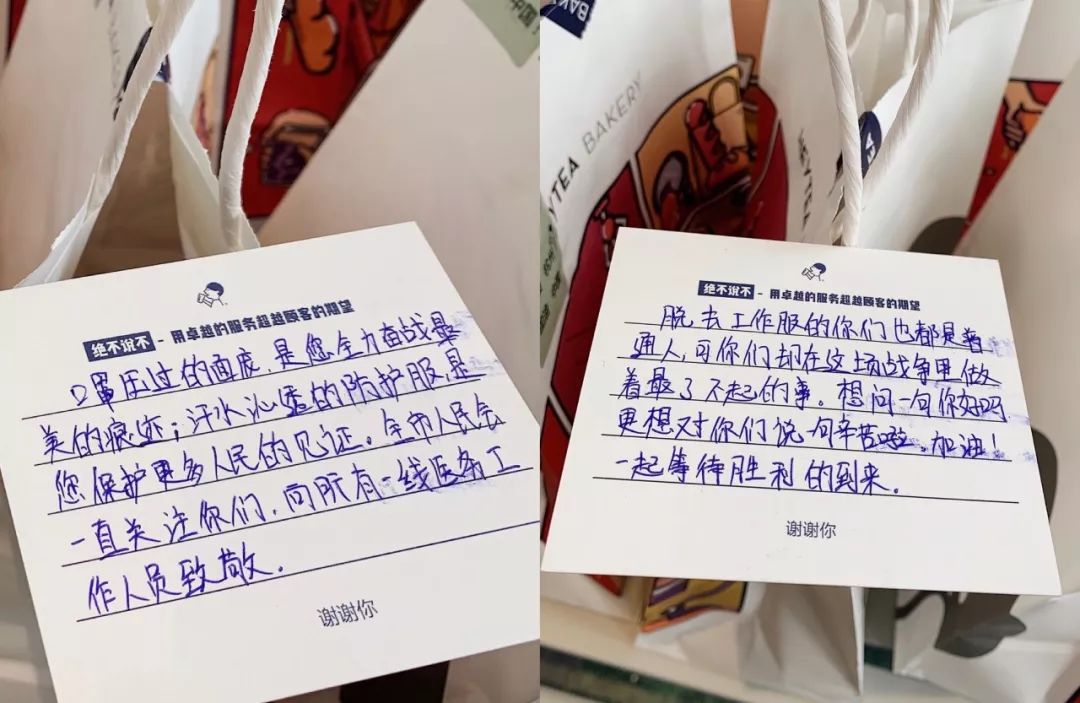 中国
BAKE
绝不说不 - 用卓越的服务超越顾客的期望
口罩压过的面庞,是您全力奋战最
美的痕迹;汗水沁透的防护服,是
您保护更多人民的见证。全市人民会
一直关注你们,向所有一线医务工
作人员致敬.
谢谢你
HEYTEA BAKERY
HEYTEA
绝不说不 - 用卓越的服务超越顾客的期望
脱去工作服的你们也都是普
通人,可你们却在这场战争里做
着最了不起的事。想问一句你好吗
更想对你们说句辛苦啦。加油!
一起等待胜利的到来.
谢谢你